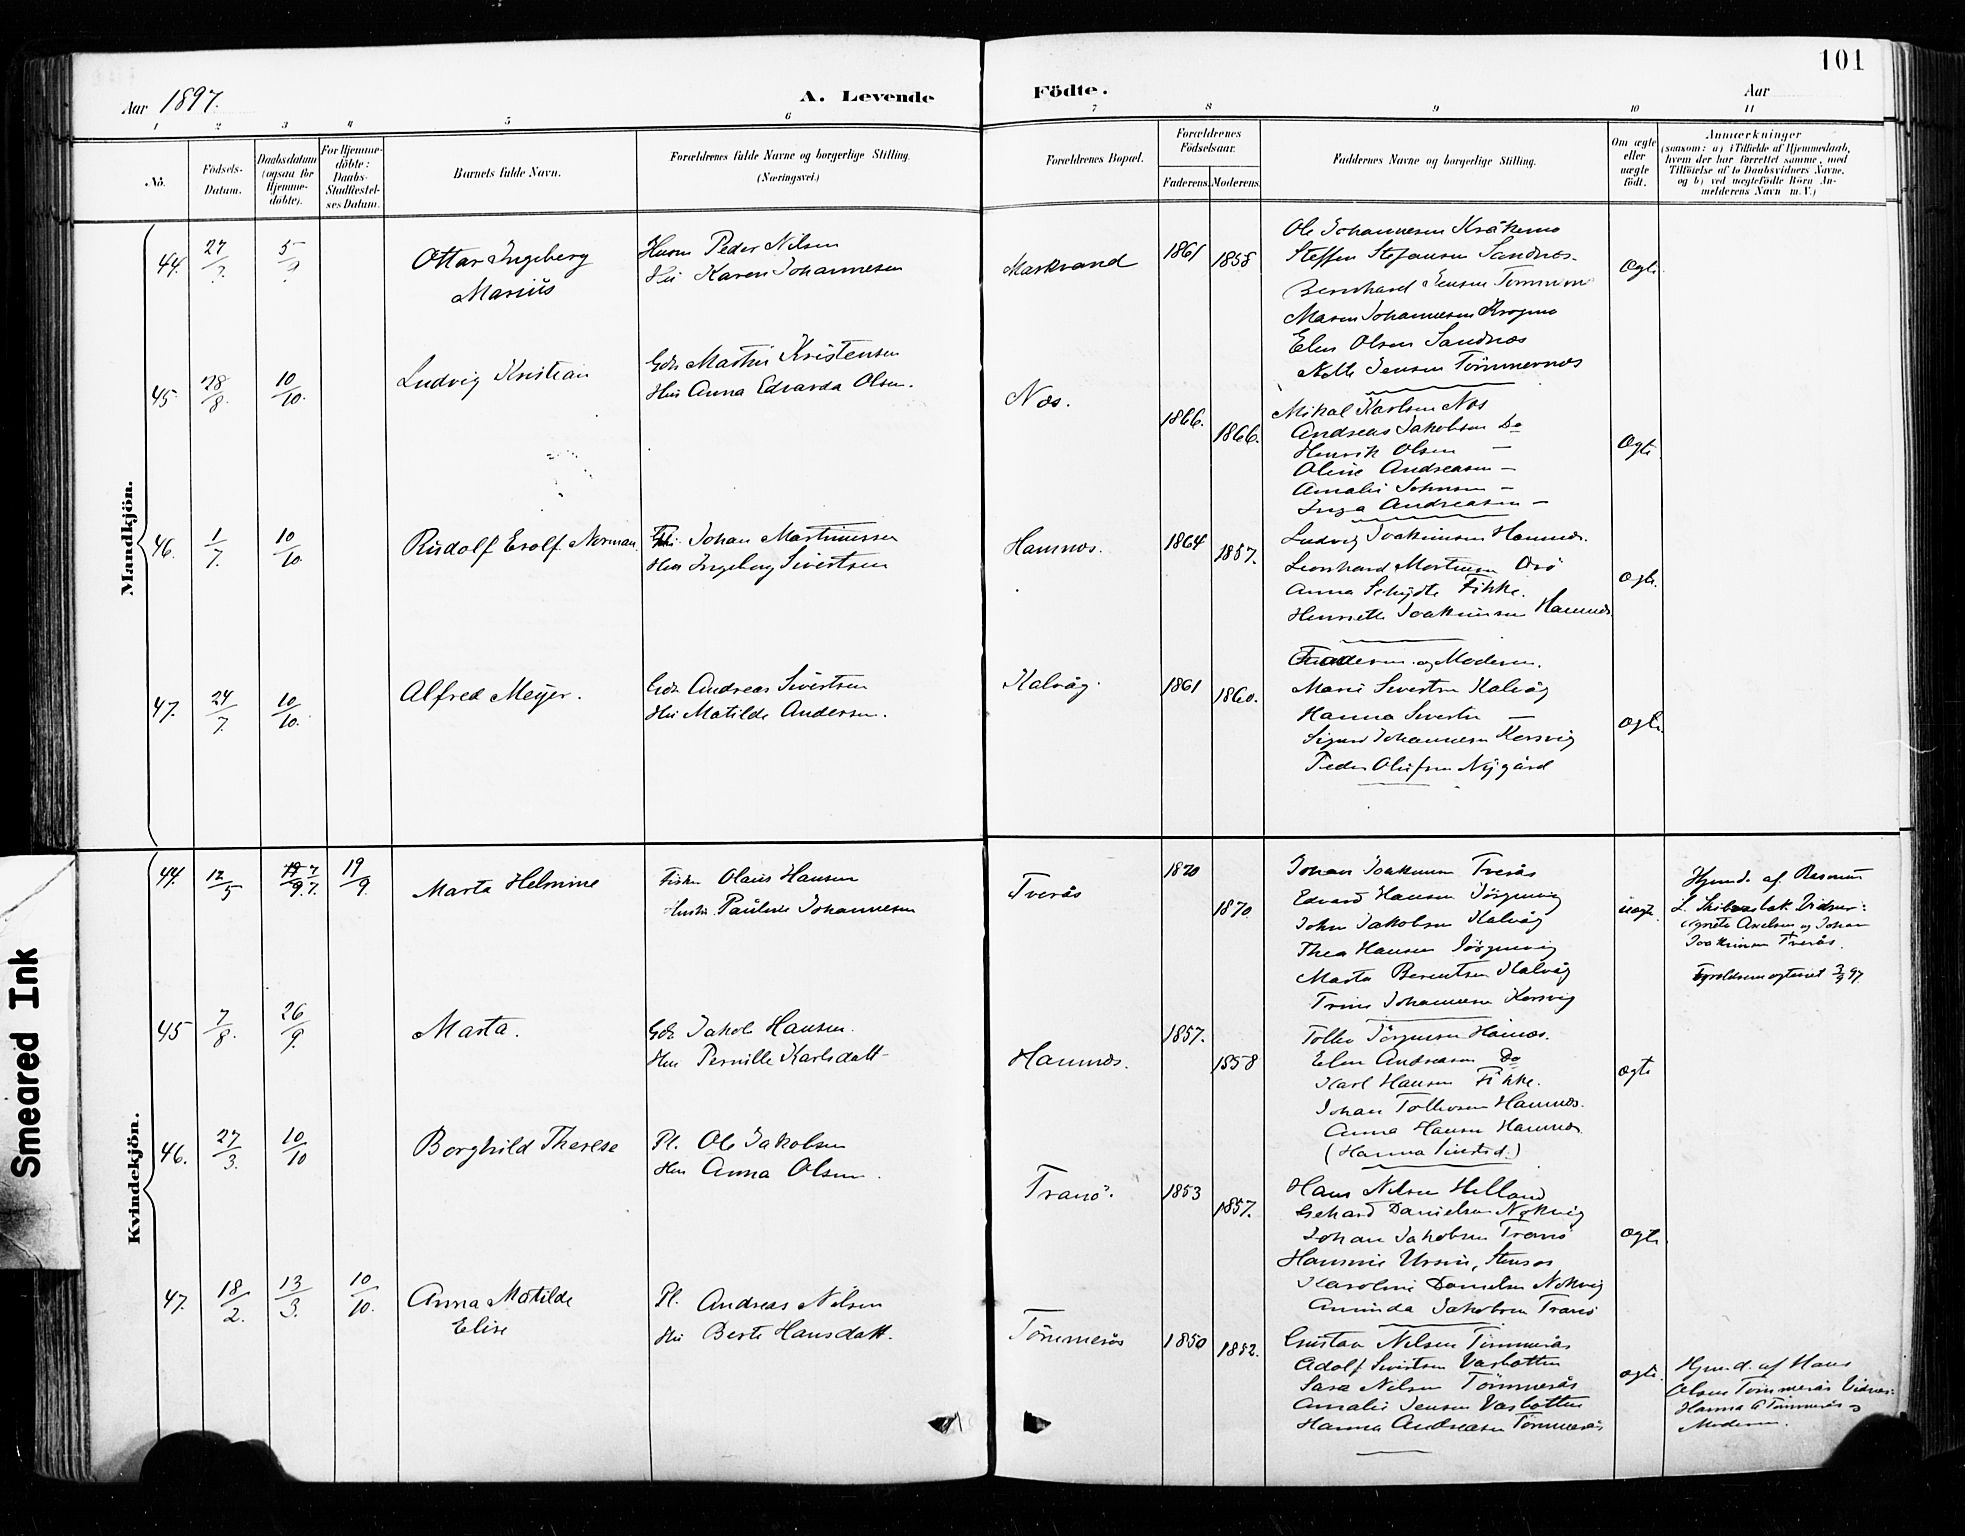 101
Aar 1897.
A. Levende Födte.
Aar
1 2 3 4 5 6 7 8 9 10 11
No.
Födsels-Datum.
Daabsdatum (ogsaa for Hjemme-döbte).
For Hjemme-döbte: Daabs-Stadfæstel-ses Datum.
Barnets fulde Navn.
Forældrenes fulde Navne og borgerlige Stilling. (Næringsvei.)
Forældrenes Bopæl.
Forældrenes Födselsaar.
Faderens. Moderens.
Faddernes Navne og borgerlige Stilling.
Om ægte eller uægte födt.
Anmærkninger
(saasom: a) i Tilfælde af Hjemmedaab, hvem der har forrettet samme, med Tilföielse af to Daabsvidners Navne, og b) ved uægtefödte Börn Anmelderens Navn m. V.)
Mandkjön.
44. 27/? 5/?
Ottar Ingeberg
Marius
Huum Peder Nilsen
Hu Karen Johannesen
Markvand
1861 1858
Ole Johannesen Kråkmo
Steffen Stefansen Sandnæs
Bernhard Jensen
Maren Johannesen
Elen Olsen Sandnæs
Nette Jensen Tømmernæs
Ægte
45. 28/8 10/10.
Ludvig Kristian
Gdr Martin Kristensen
Hu Anna Edvarda Olsen.
Næs.
1866. 1866.
Mikal Karlsen Næs
Andreas Jakobsen Do
Henrik Olsen —
Oline Andreasen —
Amalie Johnsen —
Inga Andreasen —
Ægte
46. 1/7. 10/10.
Rudolf Erolf Norman.
Johan Martinussen
Hu Ingeborg Sivertsen
Hamnæs.
1864 1857.
Ludvig Joakimsen Hamnæs.
Leonhard Mortensen
Anna Schjdte Fikke.
Henriette Joakimsen Hamnæs
Ægte.
47. 24/7. 10/10.
Alfred Meyer.
Gdr Andreas Sivertsen
Hu Matilde Andersen.
Kalvåg.
1861 1860.
Faderen og Moderen.
Marie Sivertsen Kalvåg
Hanna Sivertsen —
Johannesen Korsvig
Peder Olufsen Nygård
Ægte.
Kvindekjön.
44. 12/5 7/7. 19/9.
Marta Helmine
Fisker Olaus Hansen
Hustr. Pauline Johannesen
Tverås
1870 1870
Johan Joakimsen Tverås
Edvard Hansen Jörgenvig
John Jakobsen Kalvåg
Thea Hansen Jörgenvig
Marta Berentsen Kalvåg
Trine Johannesen Korsvig
uægte.
Hjemd. af Rasmus
L. Skibsstok Vidner:
Agnete Axelsen og Johan
Joakimsen Tverås.
Forældrene ægteviet
45 7/8. 26/9.
Marta.
Gdr Jakob Hansen.
Hu Pernille Karlsdatt
Hamnæs.
1857. 1858
Tollev Jörgensen Hamnæs.
Elen Andreasen Do
Karl Hansen Fikke.
Johan Tollevsen Hamnæs.
Anna Hansen Hamnæs
Ægte
46. 27/3. 10/10
Borghild Therese
Pl. Ole Jakobsen
Hu Anna Olsen.
Tranö.
1853 1857.
Hans Nilsen Helland
Gerhard Danielsen Nökvig
Johan Jakobsen Tranö
Hansine Ursin,
Karoline Danielsen Nökvig
Aminda Jakobsen Tranö
Ægte.
47. 18/2. 13/3. 10/10.
Anna Matilde
Elise
Pl. Andreas Nilsen
Hu Berte Hansdatt.
Tömmerås
1850 1852.
Gustav Nilsen Tömmerås
Adolf Sivertsen Vasbotten
Sara Nilsen Tömmerås
Amalie Jensen Vasbotten
Hanna Andreasen Tömmerås
ægte.
Hjemd. af Hans
Olsen Tömmerås Vidner:
Hanna Tömmerås og
Moderen.
Smeared Ink